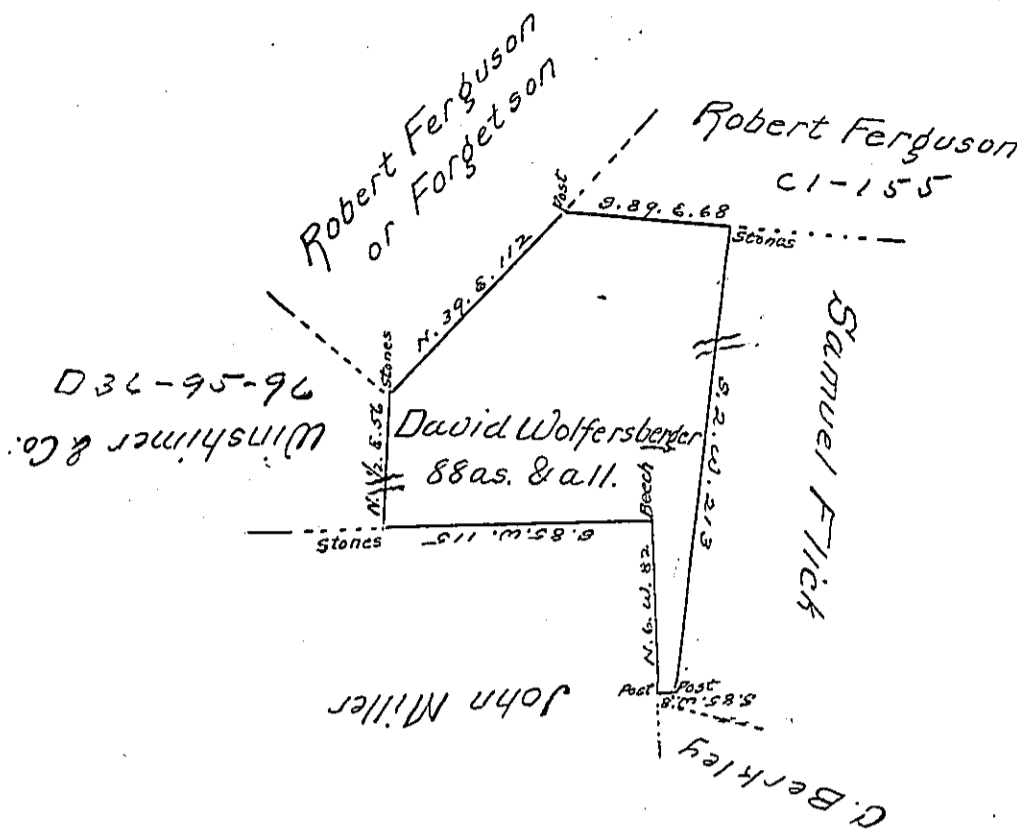 Robert Ferguson
or Forgetson
Robert Ferguson
C1-155
Post
S.89.E.68
Stones
N.39.E.112
Stones
D36-95-96
Winshimer & Co.
N.½.E.56
David Wolfersberger
88as. & all.
Beech
S.2.W.213
Samuel Flick
Stones
S.85.W.115
N.6.W.82
Post
Post
S.85.W.8
John Miller
C. Berkley